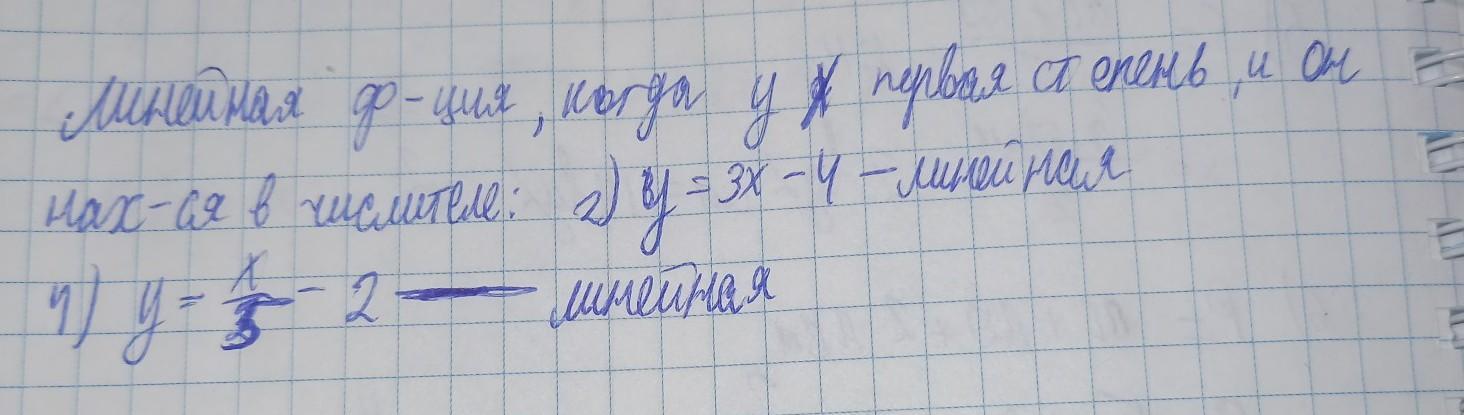 Линейная ф-ция, когда у x первая степень, и он
нах-ся в числителе: 2) y = 3x - 4 - линейная
4) y = x/3 - 2 — линейная